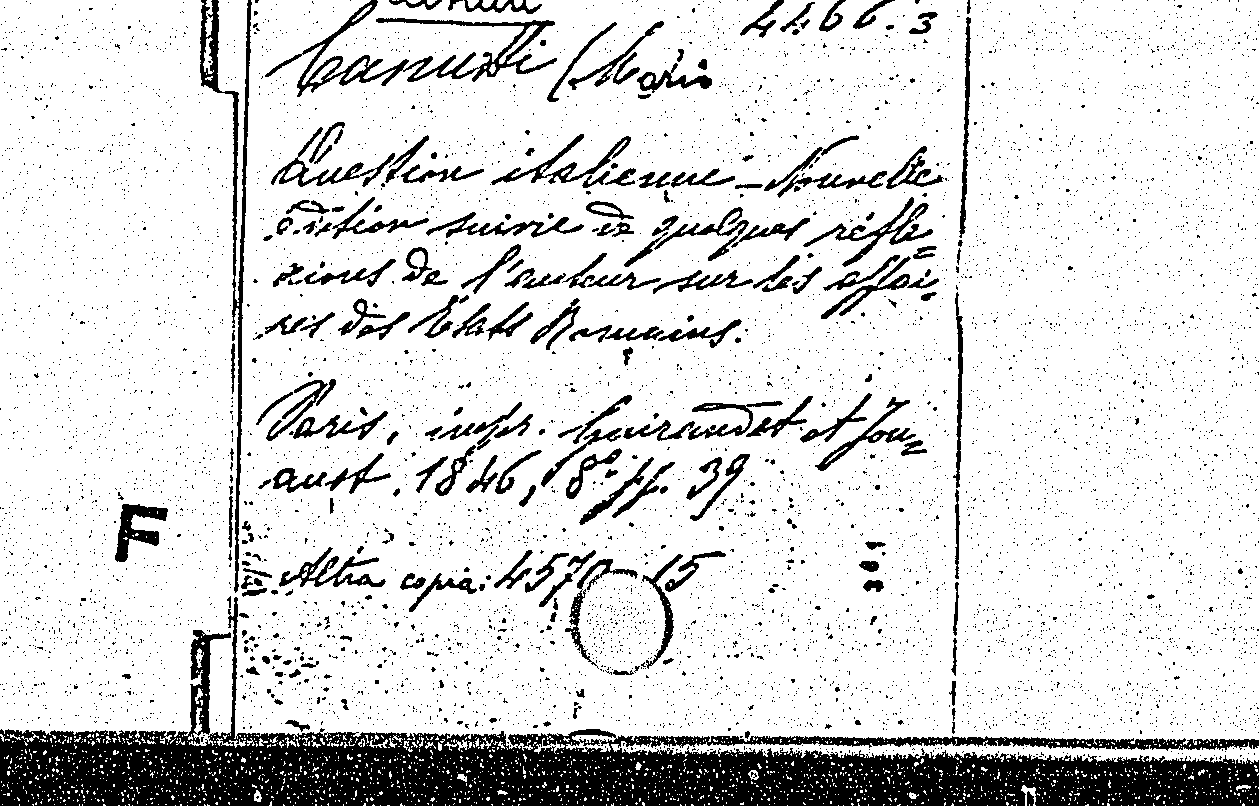 4466.3
Canuti (Mario
Question italienne – Nouvelle
édition suivie de quelques réfle=
xions de l'auteur sur les affai=
res des Etats Romains.
Paris, impr. Guiraudet et Jou=
aust, 1846, 8° pp. 39
Altra copia: 4570 15
381
F